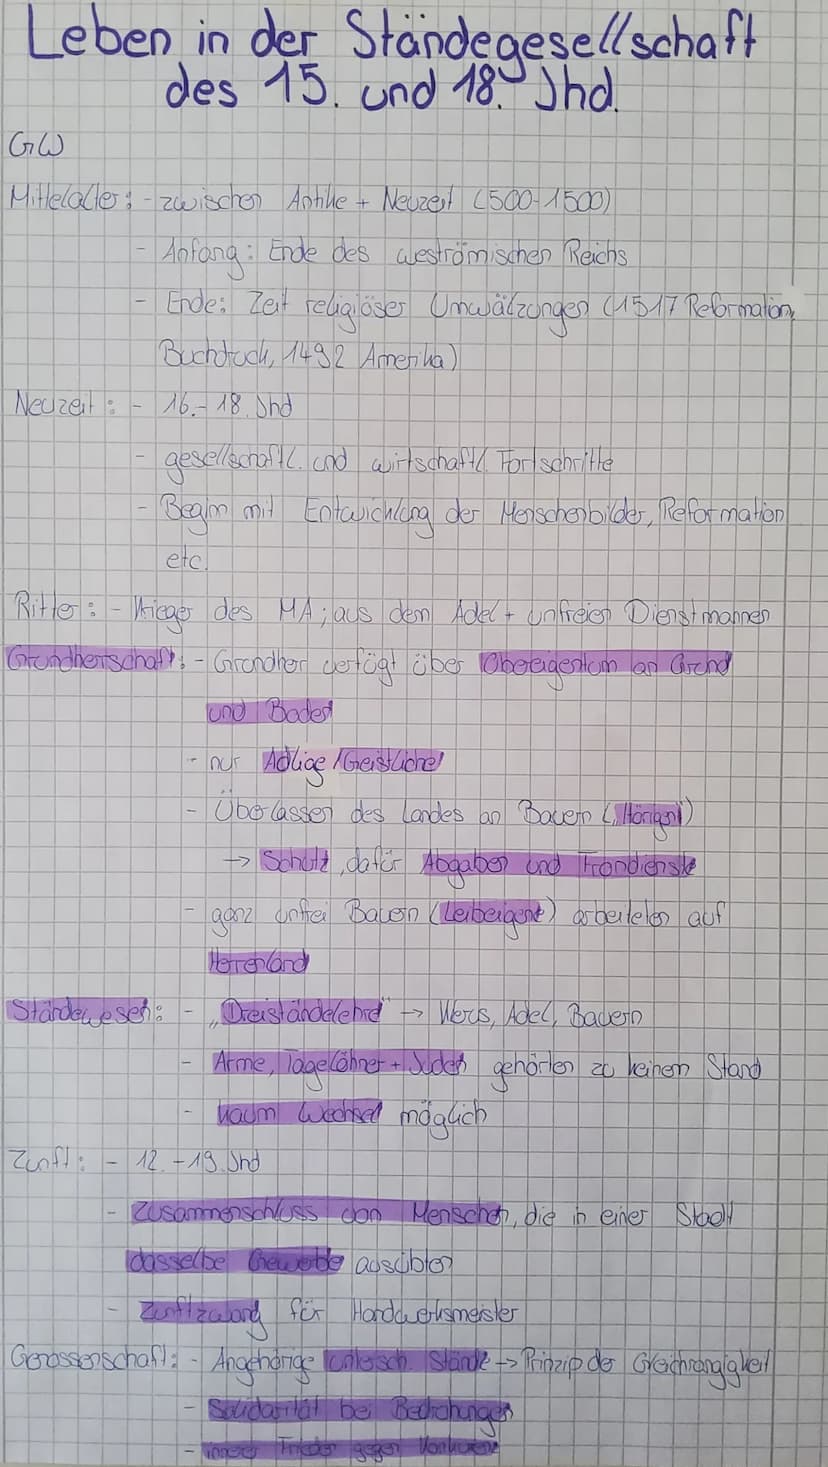 Leben in der Ständegesellschaft
des 15. und 18. Jhd.
GW
Mittelalter: - zwischen Antike + Neuzeit (500-1500)
- Anfang: Ende des weströmischen Reichs
- Ende: Zeit religiöser Umwälzungen (1517 Reformation,
Buchdruck, 1492 Amerika)
Neuzeit: - 16.-18. Jhd
- gesellschaftl. und wirtschaftl. Fortschritte
- Beginn mit Entwicklung der Menschenbilder, Reformation
etc.
Ritter: - Krieger des MA; aus dem Adel + unfreien Dienstmannen
Grundherrschaft: - Grundherr verfügt über Obereigentum an Grund
und Boden
- nur Adlige/Geistliche
- Überlassen des Landes an Bauern („Hörige")
→ Schutz, dafür Abgaben und Frondienste
- ganz unfrei Bauern (Leibeigene) arbeiteten auf
Herrenland
Ständewesen: - „Dreiständelehre" → Klerus, Adel, Bauern
- Arme, Tagelöhner + Juden gehörten zu keinem Stand
- kaum Wechsel möglich
Zunft: - 12.-19. Jhd
- Zusammenschluss von Menschen, die in einer Stadt
dasselbe Gewerbe ausübten
- Zunftzwang für Handwerksmeister
Genossenschaft: - Angehörige untersch. Stände → Prinzip der Gleichrangigkeit
- Solidarität bei Bedrohungen
- innerer Frieden gegen